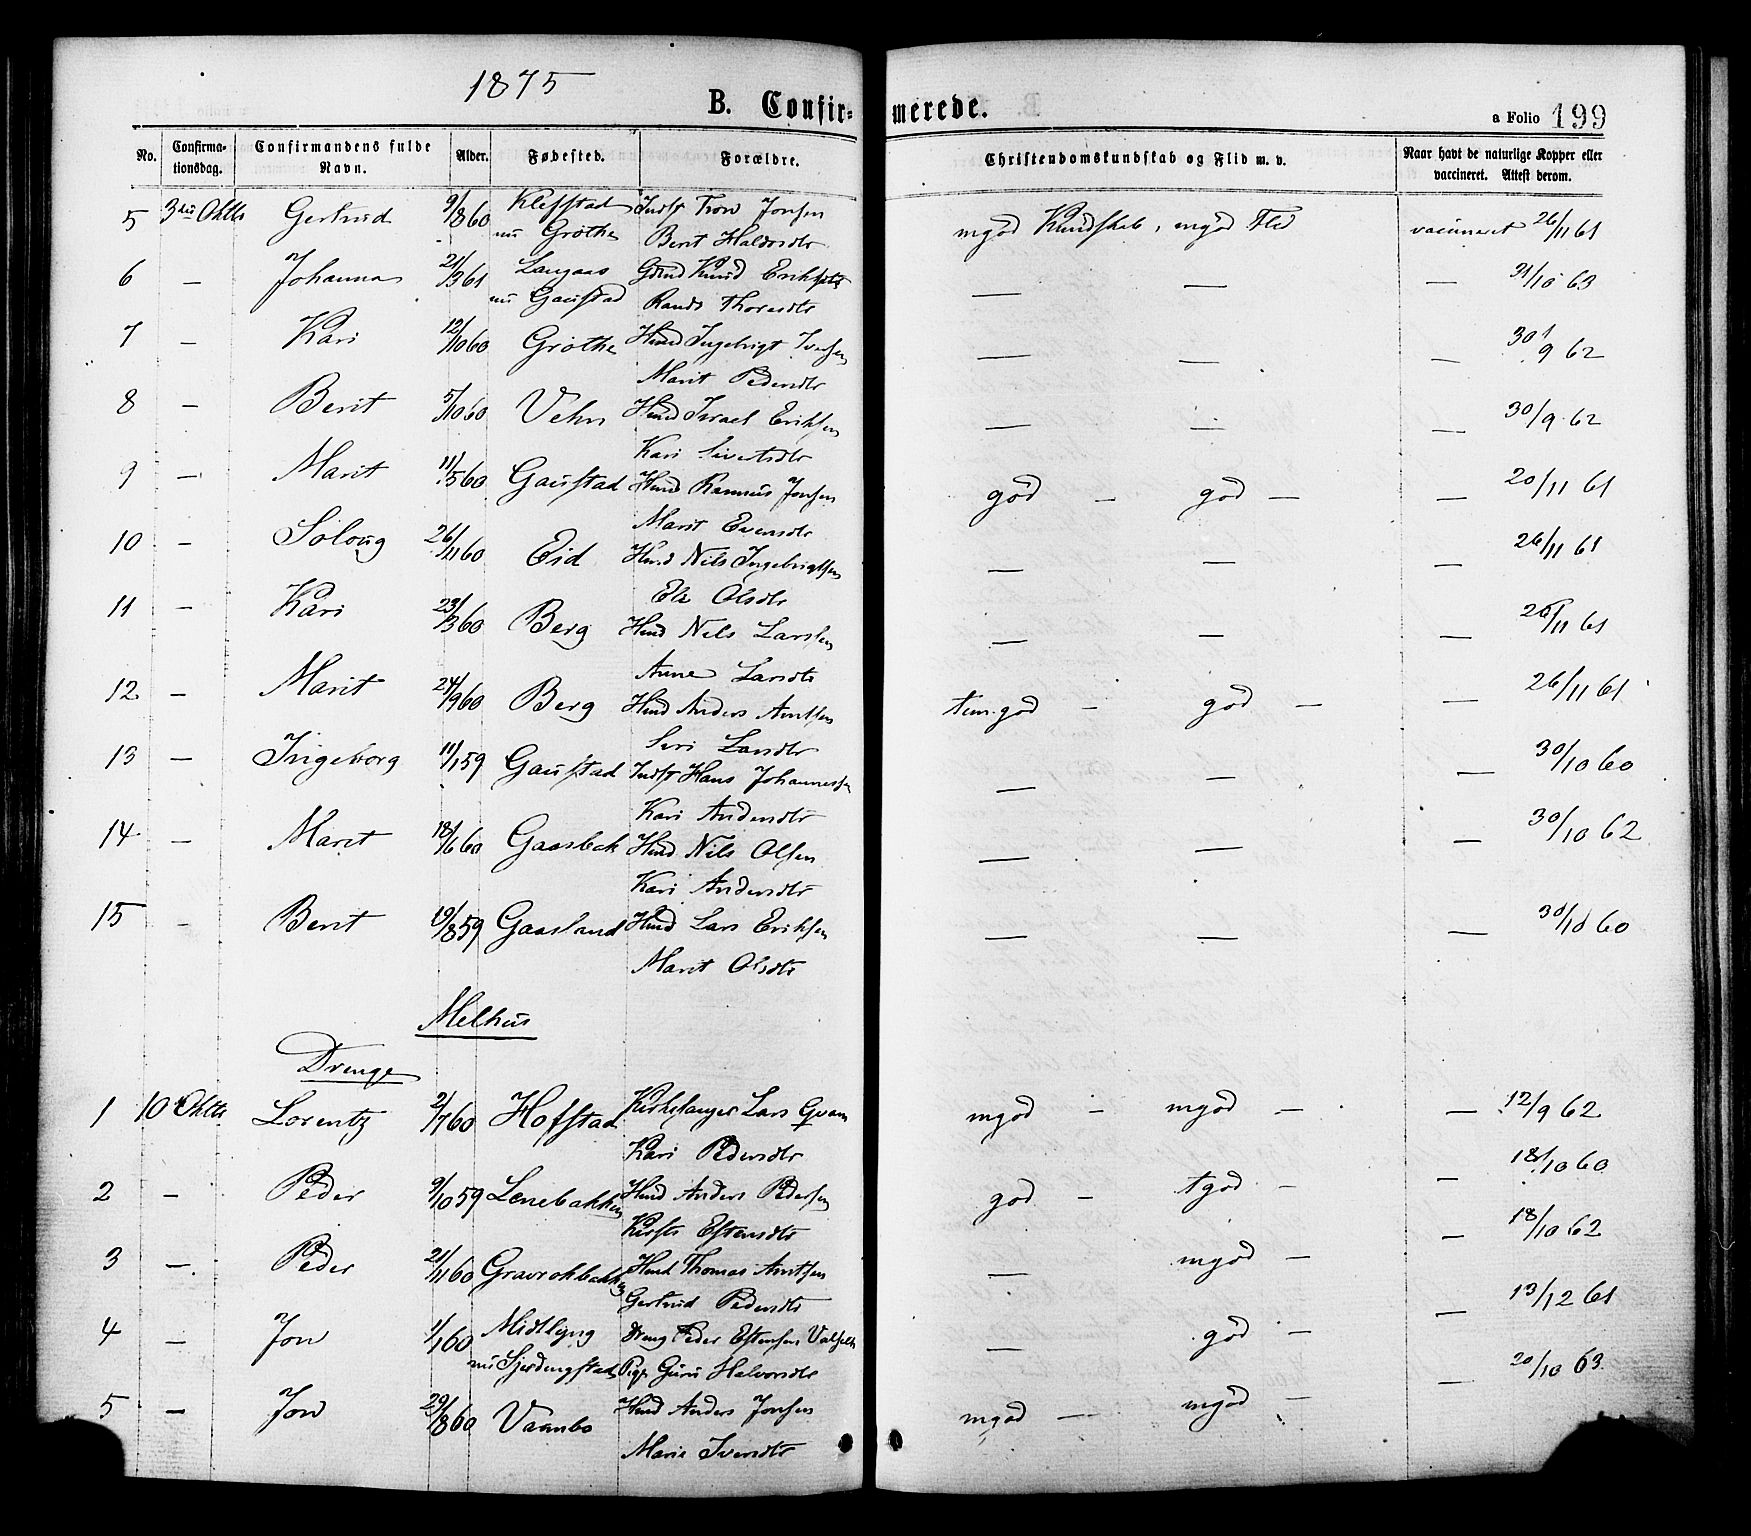 1875
B. Confir-
merede.
a Folio 199
No.
Confirma-
tionsdag.
Confirmandens fulde
Navn.
Alder.
Fødested.
Forældre.
Christendomskundskab og Flid m. v.
Naar havt de naturlige Kopper eller
vaccineret. Attest derom.
5 3die Oktbr Gertrud 9/8 60 Kleffstad Indst Tron Jonsen mgod Kundskab, mgod Flid vaccineret 26/11 61
nu Grøthe Berit Haldosdtr
6 — Johanna 21/3 61 Langaas Gdmd Knud Eriksen — — — 31/10 63
nu Gaustad Randi Thoresdtr
7 — Kari 12/10 60 Grøthe Hmd Ingebrigt Iversen — — — 30/9 62
Marit Pedersdtr
8 — Berit 5/10 60 Vehn Hmd Israel Eriksen — — — 30/9 62
Kari Sivertsdtr
9 — Marit 11/5 60 Gaustad Hmd Rasmus Jonsen god — god — — 20/11 61
Marit Evensdtr
10 — Soloug 26/11 60 Eid Hmd Nils Ingebrigtsen — — — 26/11 61
Eli Olsdtr
11 — Kari 23/3 60 Berg Hmd Nils Larsen — — — 26/11 61
Anne Larsdtr
12 — Marit 24/9 60 Berg Hmd Anders Arntsen tem. god — god — — 26/11 61
Siri Larsdtr
13 — Ingeborg 11/1 59 Gaustad Indst Hans Johannessen — — — 30/10 60
Kari Andersdtr
14 — Marit 18/6 60 Gaasbak Hmd Nils Olsen — — — 30/10 62
Kari Andersdtr
15 — Berit 19/8 59 Gaasland Hmd Lars Eriksen — — — 30/10 60
Marit Olsdtr
Melhus
Drenge
1 10 Oktbr. Lorentz 2/7 60 Hofstad Kirkesanger Lars Qvam mgod — mgod — — 12/9 62
Kari Pedersdtr
2 — Peder 9/10 59 Lenebakken Hmd Anders Pedersen god — tgod — — 18/10 60
Kirsti Estensdtr
3 — Peder 21/11 60 Gravrokbakken Hmd Thomas Arntsen — mgod — — 18/10 62
Gertrud Pedersdtr
4 — Jon 1/1 60 Midtlyng Dreng Peder Estensen — god — — 13/12 61
nu Pige Guru Halvorsdtr
5 — Jon 29/8 60 Vaambo Hmd Anders Jonsen mgod — mgod — — 20/10 63
Marie Iversdtr